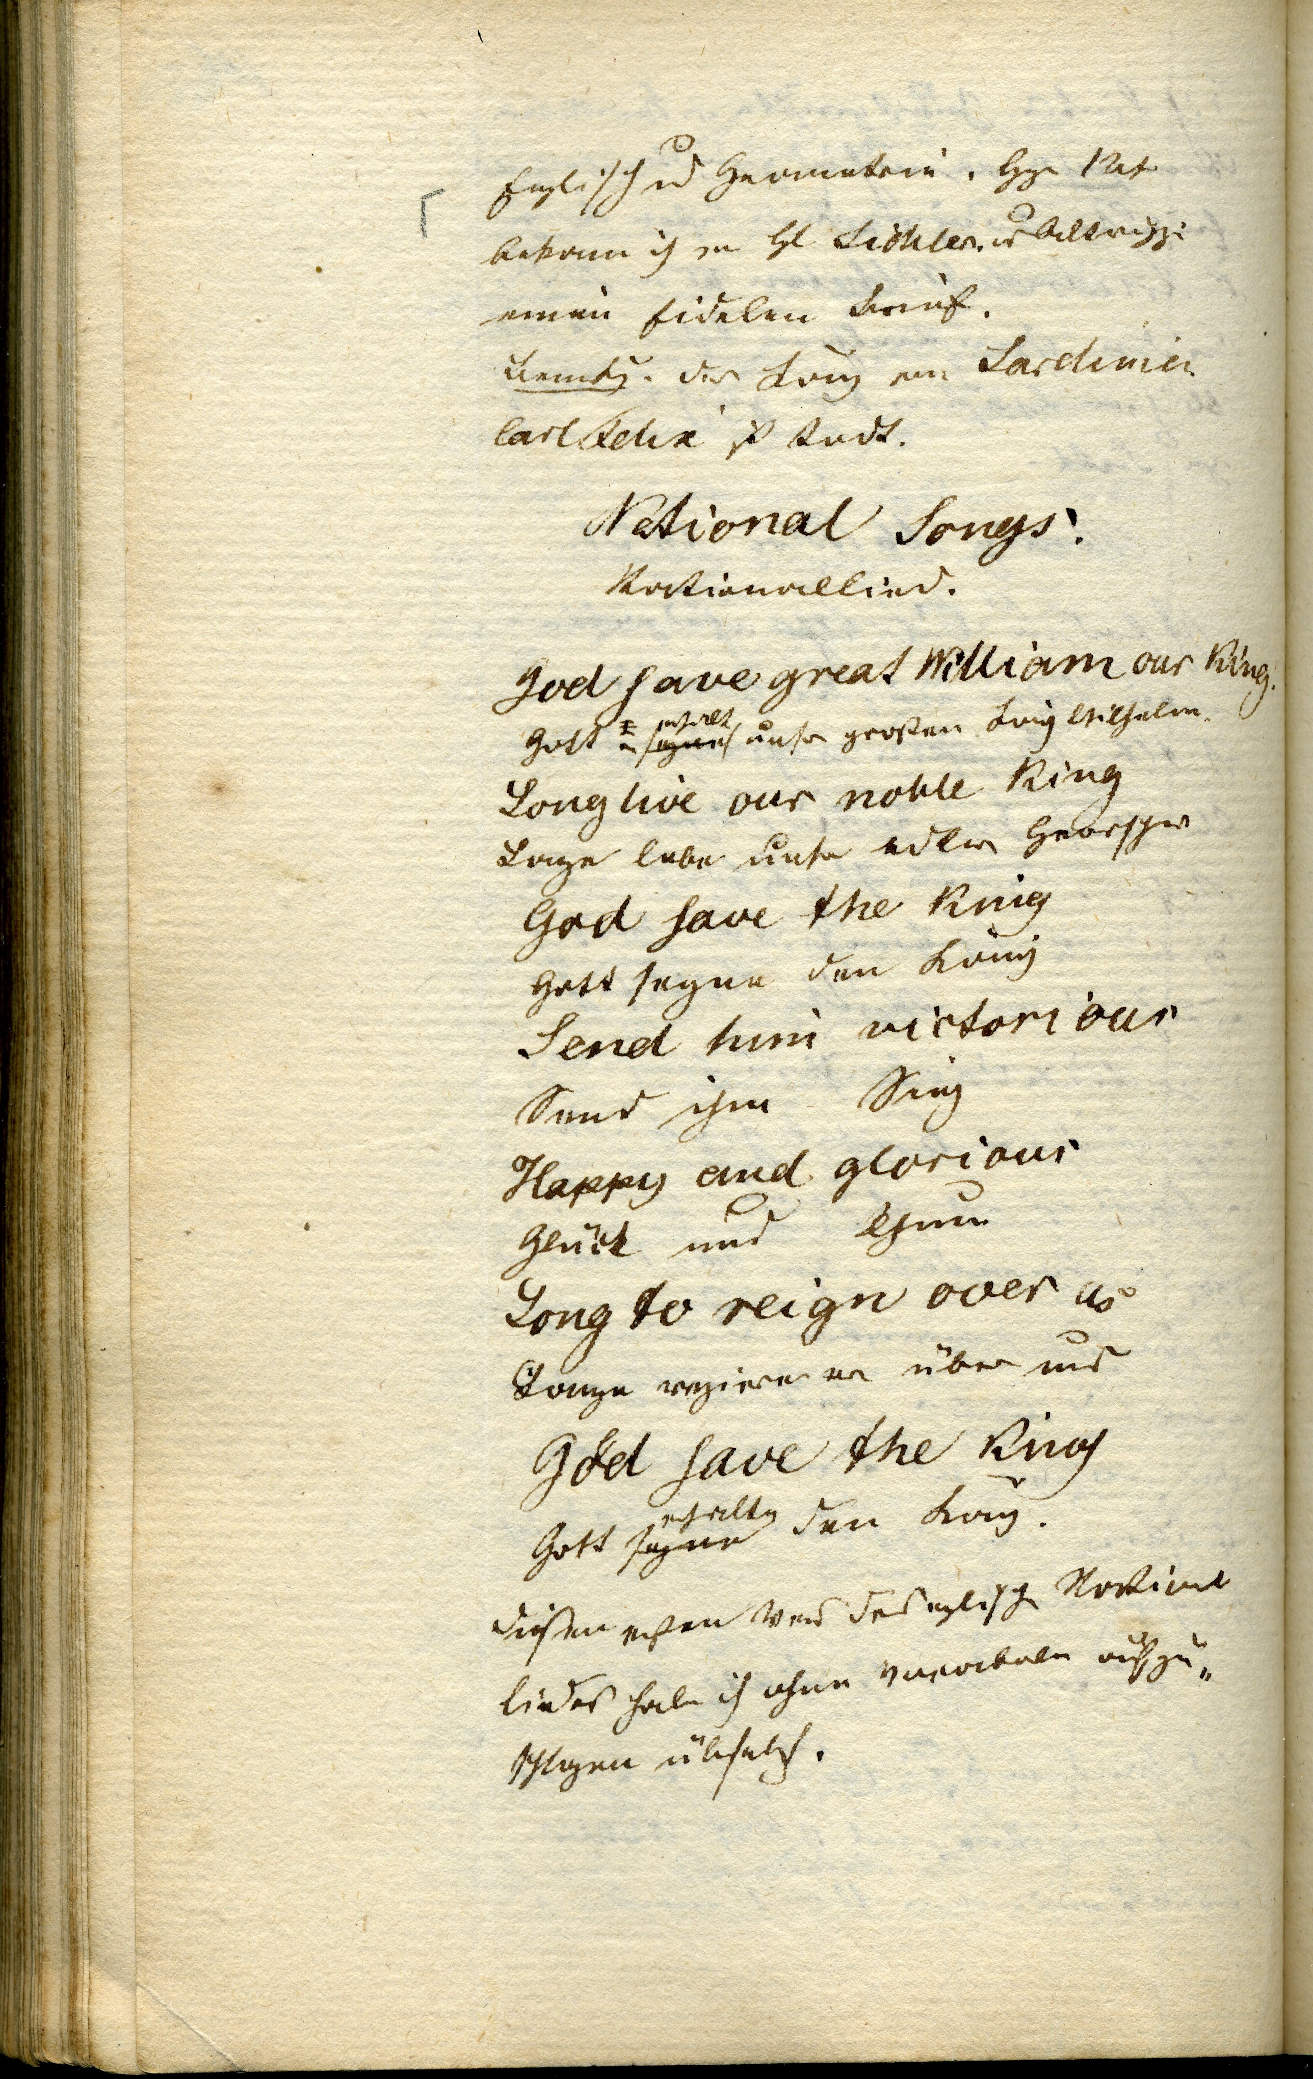 Englisch u Geometrie. Gge
bekam ich
einen fidelen Brief.
Bemkg. der König von Sardinien
Carl Felix ist todt.
National Songs.
Nationallied.
God save great William our King.
Gott erhalt segne unsern großen König Wilhelm.
Long live our noble King
Lange lebe unser edler Herscher
God save the King
Gott segne den König
Send him victorious
Send ihm Sieg
Happy and glorious
Glück und Ruhm
Long to reign over us
Lange regiere er über uns
God save the King
Gott segne erhalte den König.
Diesen ersten Vers des englischen National
liedes habe ich ohne Vocabeln aufzu„
schlagen übersetzt.